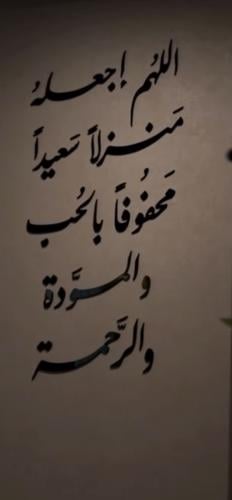 اللهُم إجعلهُ
مَنزلاً سَعيداً
مَحفُوفاً بالحُب
والموَدة
والرَّحمة